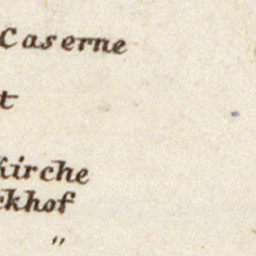 Caserne
t
Kirche
ckhof
"